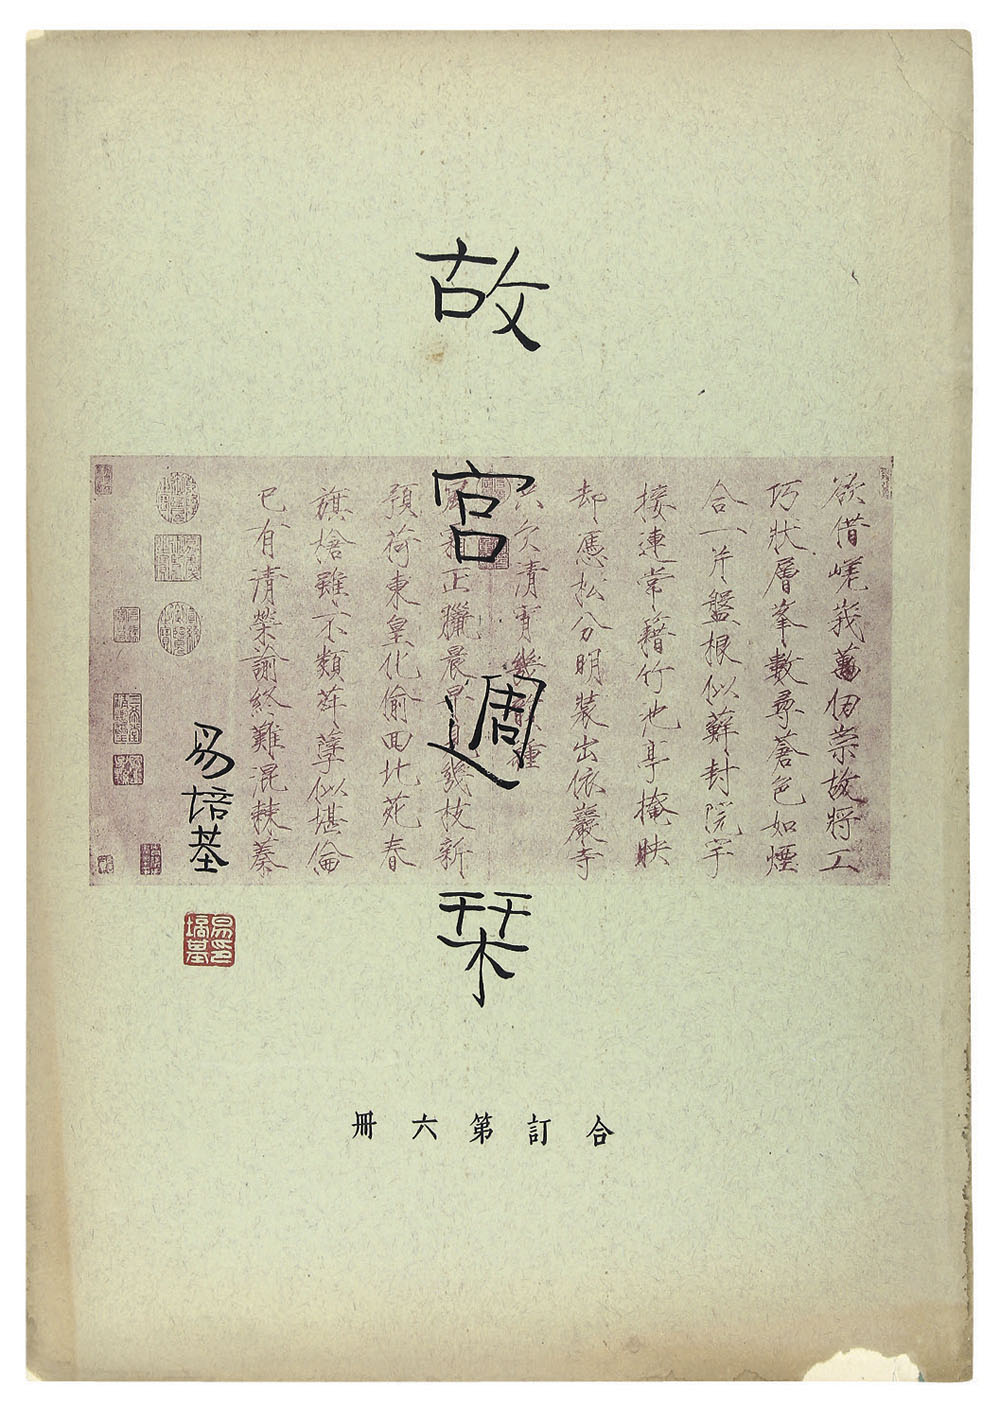 故宫週栞
欲借嵯峩萬仞崇故將工
巧狀層峯數尋蒼色如煙
合一片盤根似蘚封院宇
接連常籍竹池亭掩映
却憑松分明裝出依巖寺
只欠清宵幾
正臘晨早幾枝新
預荷東皇化偷回北苑春
旗槍雖不類荈孽似堪倫
已有清榮諭終難混棘蓁
易培基
易培基印
合訂第六冊